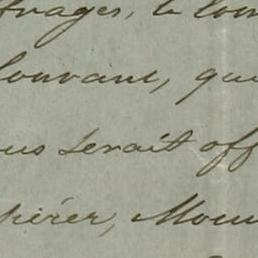 frages, le com
louvant, que
ous serait off
périer, Mous